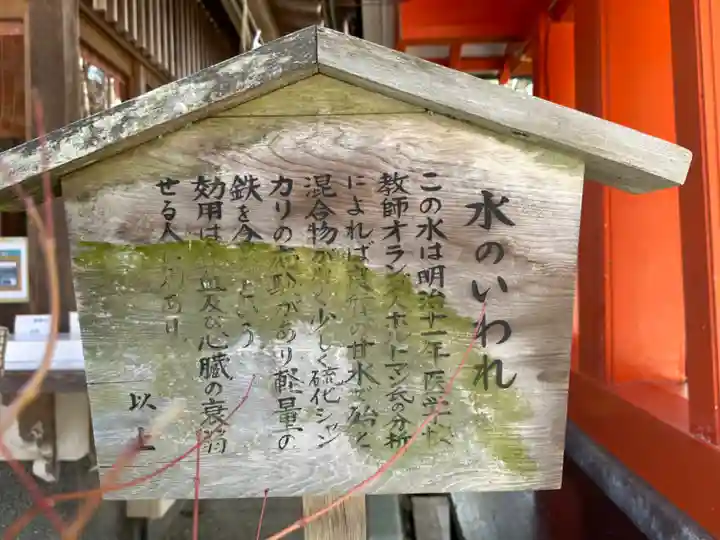 水のいわれ
この水は明治十一年医学
教師オランダ人ホルトマン氏の分析
によれば の甘水 殆と
混合物がなく少しく硫化シャン
カリの があり軽量の
鉄を含 という
効用は 血及び心臓の衰弱
せる人に利あり
以上